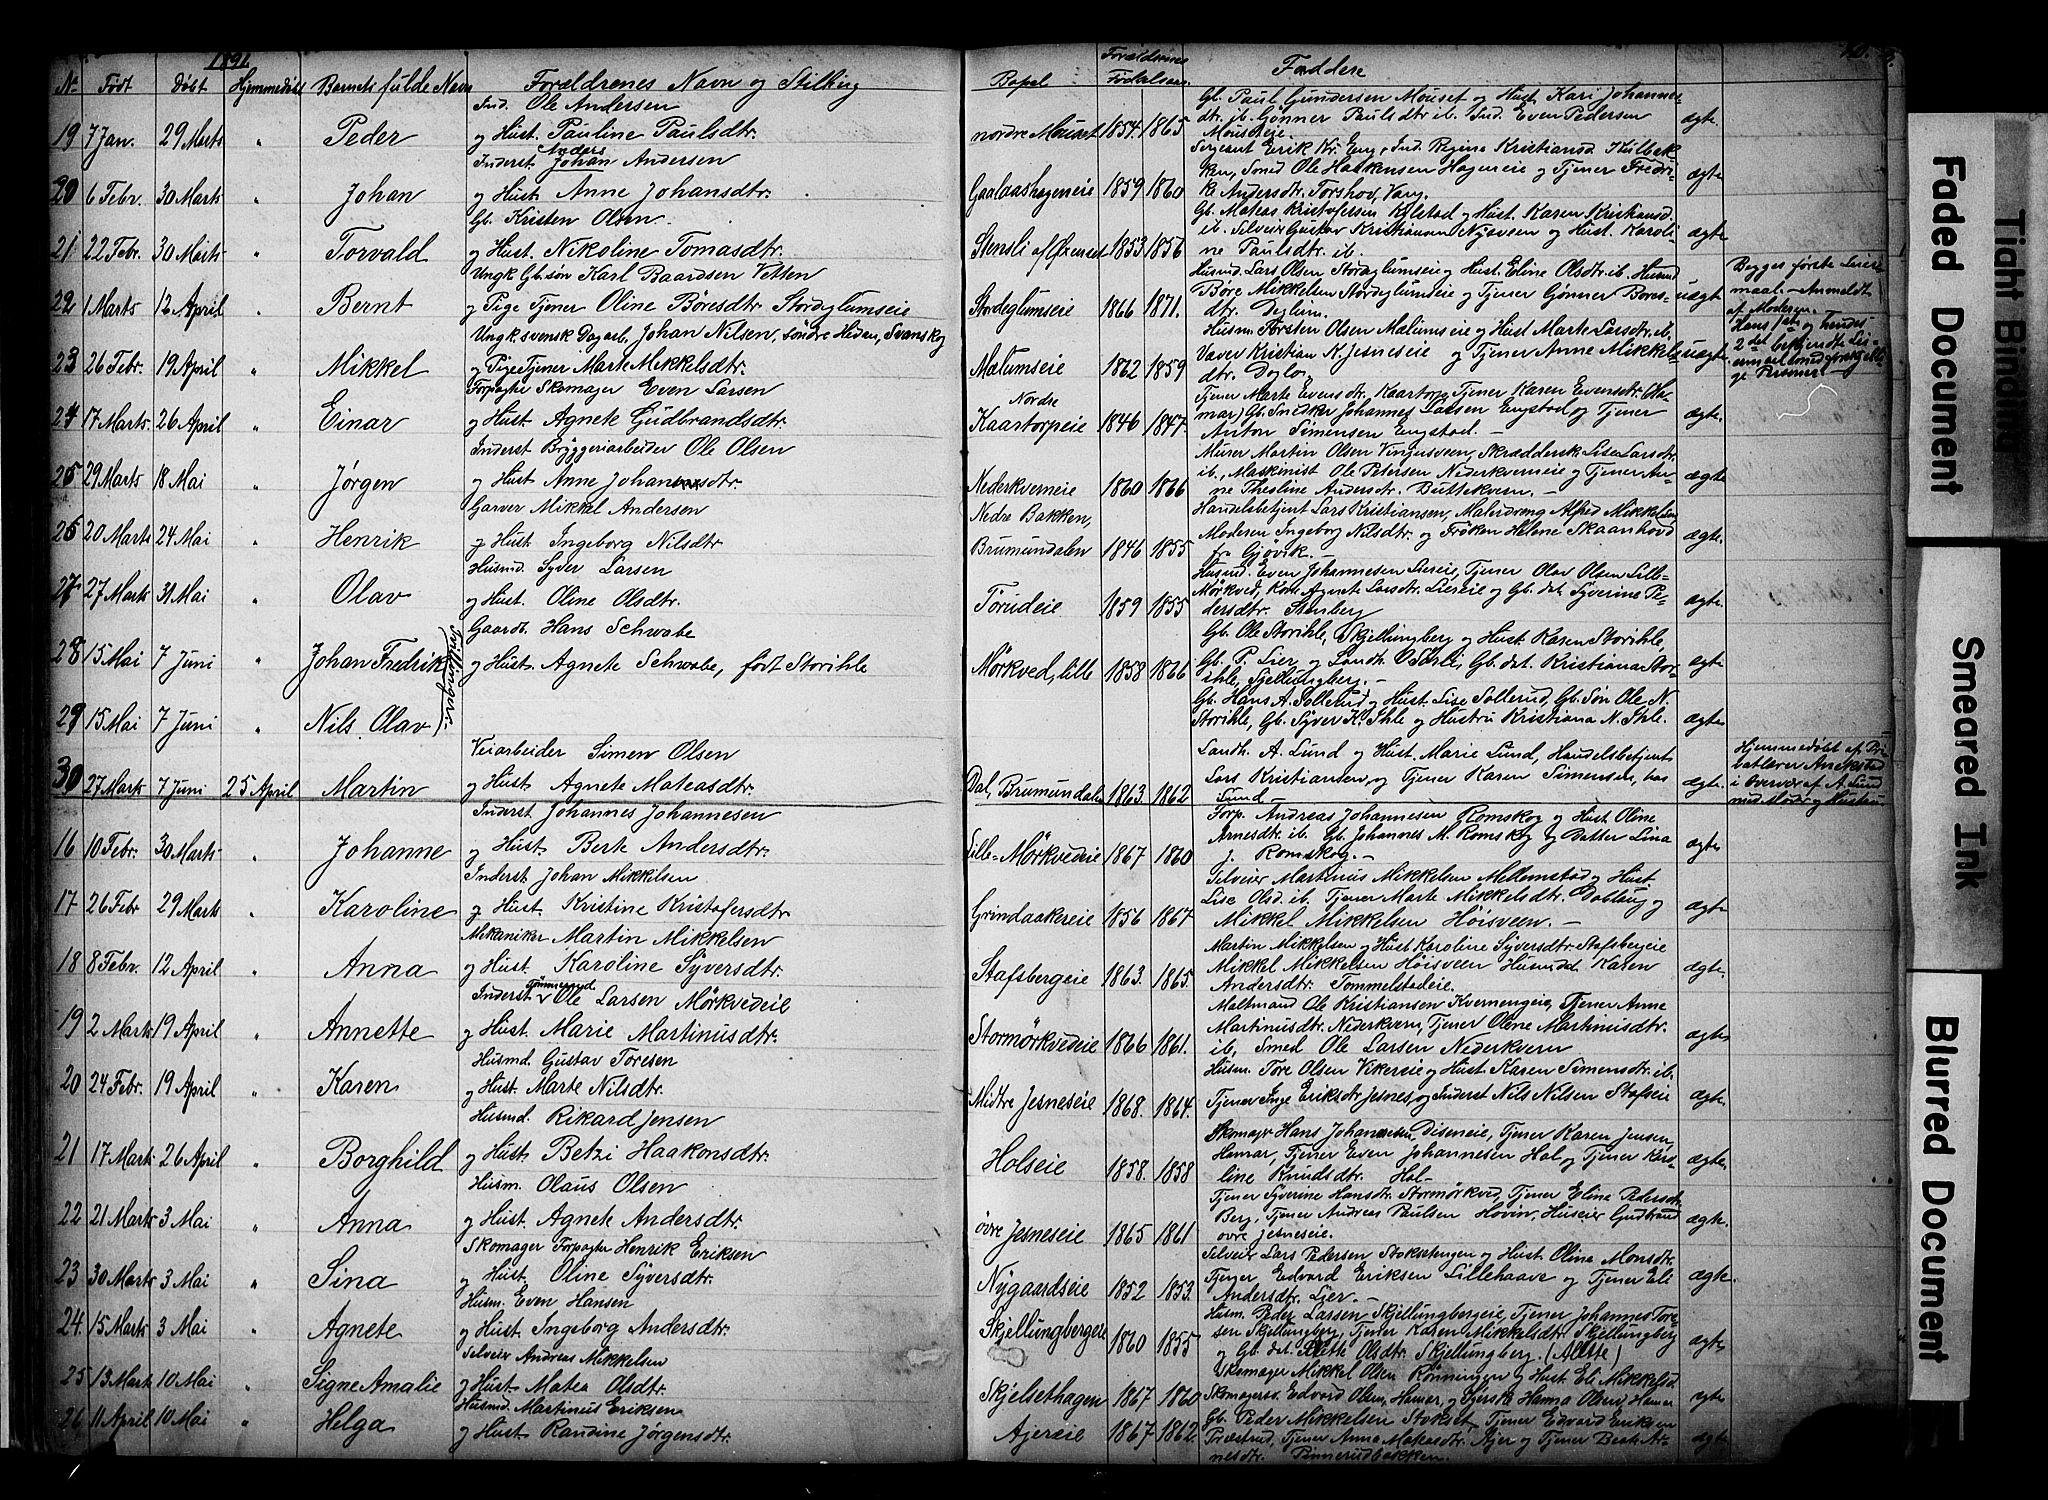 1891.
No Født Døbt Hjemmedøbt Barnets fulde Navn Forældrenes Navn og Stilling Bopæl Forældrenes Fødselsaar. Faddere
Ind. Ole Andersen
19 7 Jan. 29 Marts " Peder og Hust. Pauline Paulsdtr. nordre Mouset 1854. 1865. Gb. Paul Gundersen Mouset og Hust. Kari Johannes-
dtr. ib. Gønner Paulsdtr ib. Ind. Even Pedersen
Mouseteie. ægte
Inderst Anders Johan Andersen
20 6 Febr. 30 Marts " Johan og Hust. Anne Johansdtr. Gaalaashageneie 1859 1860 Sergeant Erik Kr. Eng, Ind. Regine Kristiansd. Kulbæk-
ken, Smed Ole Haakensen Hageneie og Tjener Fredri-
ke Andersdtr. Torshov, Vang. ægte
Gb. Kristen Olsen.
21 22 Febr. 30 Marts " Torvald og Hust. Nikoline Tomasdtr. Stensli af Økenset 1853 1856 Gb. Mateas Kristofersen Kilstad og Hust. Karen Kristiansd.
ib. Selveier Gustav Kristiansen Nysveen og Hust. Karoli-
ne Paulsdtr. ib. ægte
Ungk. Gb.søn Karl Baardsen Vetten
22 1 Marts 12 April " Bernt og Pige Tjener Oline Børesdtr Stordeglumseie Stordeglumseie 1866 1871. Husmd. Lars Olsen Stordeglumseie og Hust. Eline Olsdtr. ib. Husmd
Børe Mikkelsen Stordeglumseie og Tjener Gønner Børes-
dtr. Deglum. uægte Begges første Leier-
maal. Anmeldt
af Moderen.
Ungk. svensk Dagarb. Johan Nilsen, söndre Heden, Svanskog
23 26 Febr. 19 April " Mikkel og Pige Tjener Marte Mikkelsdtr. Mælumseie 1862 1859 Husm. Torsten Olsen Mælumseie og Hust Marte Larsdtr. ib,
Væver Kristian K. Jesneseie og Tjener Anne Mikkels-
dtr. Doglo. uægte Hans 1ste og hendes
2det bekjendte Lei-
Forpagter Skomager Even Larsen
24 17 Marts. 26 April " Einar og Hust. Agnete Gudbrandsdtr. Nordre
Kaastorpeie 1846 1847. Tjener Marte Evensdtr. Kaastorp, Tjener Karen Evensdtr. (Ha-
mar) Gb. Snedker Johannes Larsen Engstad og Tjener
Anton Simensen Engstad. ægte
Inderst Bryggeriarbeider Ole Olsen
25 29 Marts 18 Mai " Jørgen og Hust Anne Johannesdtr. Nederkverneie 1860 1866 Murer Martin Olsen Vingesveen, Skrædderske Lise Larsdtr.
ib., Maskinist Ole Petersen Nederkverneie og Tjener An-
ne Thesline Andersdtr. Buttekvern. ægte
Garver Mikkel Andersen
26 20 Marts 24 Mai " Henrik og Hust. Ingeborg Nilsdtr. Nedre Bakken,
Brumundalen 1846 1855 Handelsbetjent Lars Kristiansen, Malerdreng Alfred Mikkelsen
Moderen Ingeborg Nilsdtr. og Frøken Helene Skaanhovd
fr. Gjøvik. ægte.
Husmd. Syver Larsen
27 27 Marts 31 Mai " Olav og Hust. Oline Olsdtr. Torudeie 1859 1855 Husmd. Even Johannesen Liereie, Tjener Olav Olsen Lille-
Mörkved, Kone Agnete Larsdtr. Liereie og Gb. dat. Syverine Pe-
dersdtr. Stenberg ægte.
Gaardb. Hans Schwabe
28 15 Mai 7 Juni " Johan Fredrik Tvillinger. og Hust. Agnete Schwabe, født Storihle Mörkved, lille 1858 1866 Gb. Ole Storihle, Skjellungberg og Hust. Karen Storihle,
Gb. P. Lier og Landh. O Sörli, Gb. dat. Kristiana Stor-
ihle, Sjellungberg. ægte.
29 15 Mai 7 Juni " Nils Olav Gb. Hans A. Sollerud og Hust. Lise Sollerud, Gb. Søn Ole N.
Storihle, Gb. Syver K. Ihle og Hustru Kristiana N. Ihle. ægte
Veiarbeider Simen Olsen
30 27 Marts 7 Juni 25 April Martin og Hust. Agnete Mateasdtr. Dal, Brumundalen 1863. 1862 Landh. A. Lund og Hust. Marie Lund, Handelsbetjent
Lars Kristiansen, og Tjener Karen Simensen, hos
Lund. ægte. Hjemmedøbt af Pri-
vatlærer Anekstad
i Overvær af A. Lund
med Moder og Hustru
Inderst Johannes Johannesen
16 10 Febr. 30 Marts " Johanne og Hust. Berte Andersdtr. Lille-Mörkvedeie 1867 1860 Forp. Andreas Johannesen Romskog og Hust. Oline
Arnesdtr. ib. Gb. Johannes M. Romskog og Datter Lina
J. Romskog. ægte
Inderst Johan Mikkelsen
17 26 Febr 29 Marts " Karoline og Hust. Kristine Kristofersdtr Grindaakereie 1856 1867 Selveier Martinus Mikkelsen Mellemstad og Hust.
Lise Olsd. ib. Tjener Marte Mikkelsdtr. Doblaug og
Mikkel Mikkelsen Höisveen. ægte
Mekaniker Martin Mikkelsen
18 8 Febr. 12 April " Anna og Hust. Karoline Syversdtr. Stafsbergeie 1863. 1865. Martin Mikkelsen og Hust Karoline Syversdtr. Stafsbergeie
Mikkel Mikkelsen Höisveen Husmdd. Karen
Andersdtr. Tommelstadeie. ægte
Inderst Tømmermd Ole Larsen Mörkvedeie
19 2 Marts 19 April " Annette og Hust. Marie Martinusdtr. Stormörkvedeie 1866 1861. Maltmand Ole Kristiansen Kvernengeie, Tjener Anne
Martinusdtr. Nederkvern, Tjener Olene Martinusdtr.
ib, Smed Ole Larsen Nederkvern ægte
Husmd. Gustav Toresen
20 24 Febr. 19 April " Karen og Hust. Marte Nilsdtr. Midtre Jesneseie 1868. 1864. Husm. Tore Olsen Vikereie og Hust. Karen Simensdtr. ib.
Tjener Inge Eriksdtr. Jesnes, og Inderst Nils Nilsen Stafseie ægte
Husmd. Rikard Jensen
21 17 Marts 26 April " Borghild og Hust. Betzi Haakonsdtr. Holseie 1858. 1858 Skomager Hans Johannesen Diseneie, Tjener Karen Jensen,
Hamar, Tjener Even Johannesen Hol og Tjener Karo-
line Knudsdtr. Hol. ægte.
Husm. Olaus Olsen
22 21 Marts 3 Mai " Anna og Hust. Agnete Andersdtr. övre Jesneseie 1865 1861 Tjener Syverine Hansdtr. Stormörkved, Tjener Eline Pedersdtr.
Berg, Tjener Andreas Paulsen Hovin, Huseier Gudbrand
övre Jesneseie. ægte.
Skomager Forpagter Henrik Eriksen
23 30 Marts 3 Mai " Sina og Hust. Oline Syversdtr. Nygaardseie 1852 1853. Selveier Lars Pedersen Stoksetengen og Hust. Olina Monsdtr.
Tjener Edvard Eriksen Lillehaave og Tjener Eli
Andersdtr. Lier. ægte.
Husm. Even Hansen
24. 15 Marts 3 Mai " Agnete og Hust. Ingeborg Andersdtr. Skjellungbergeie 1860 1855 Husm. Peder Larsen Skjellungbergeie, Tjener Johannes Tore-
sen Skjellungberg, Tjener Karen Mikkelsdtr. Skjellungberg
og Gb. dat. Alette Olsdtr. Skjellungberg. (Alette) ægte
Selveier Andreas Mikkelsen
25 13 Marts 10 Mai " Signe Amalie og Hust. Matea Olsdtr. Skjelsethagen 1867 1860 Skomager Mikkel Olsen Rönningen og Hust. Eli Mikkelsd.
Skomagersv. Edvard Olsen, Hamar, og Syerske Hanna Olsen, Hamar ægte
Husmd. Martinus Eriksen
26 11 April 10 Mai " Helga og Hust. Randine Jørgensdtr. Ajereie 1867 1862. Gb. Peder Mikkelsen Stokset, Tjener Edvard Eriksen
Præstrud, Tjener Anna Mateasdtr. Ajer og Tjener Berte Ar-
nesdtr. Pinnerudbakken. ægte
Tight Binding
Faded Document
Smeared Ink
Blurred Document